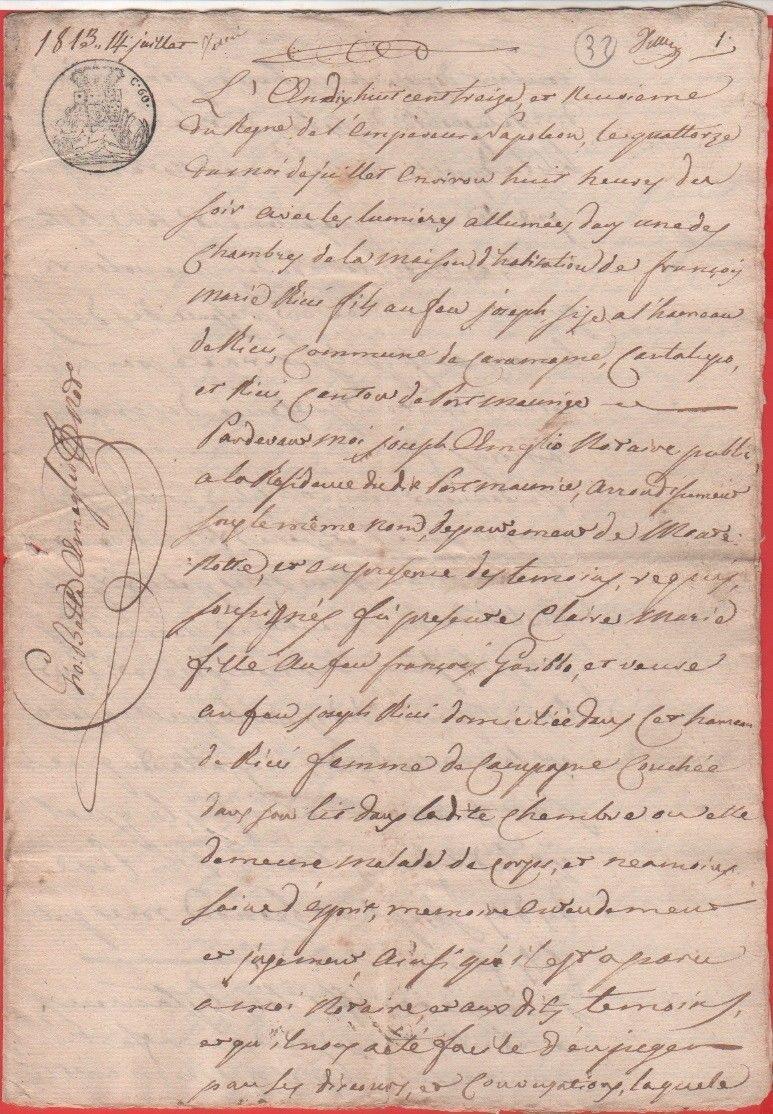 1813. 14 juillet
32
1.
C. 60.
L'An dix huit cent treize, et neuvieme
du Regne de l'Empereur Napoleon, le quattorze
du mois de juillet environ huit heures du
soir avec les lumieres allumées dans une des
Chambres de la maison d'habitation de françois
marie Ricci fils au feu joseph size a l'hameau
de Ricci, Commune de Caramagne, Cantalupo,
et Ricci, Canton de Port maurice
Pardevant moi joseph Ameglio Notaire public
a la Residence du dit Port maurice, arrondissement
sous le même nom, departement de Monte:
notte, et au presence des temoins requis,
soussignés fû presente Claire Marie
fille au feu françois Garibbo, et veuve
au feu joseph Ricci domiciliée dans cet hameau
de Ricci femme de Campagne Couchée
dans son lit dans la dite Chambre ou elle
demeure malade de corps, et neanmoins
saine d'ésprit, memoire entendement
et jugement, Ainsi qu'il est apparu
a moi Notaire, et aux dits temoins,
et qu'il nous a été facile d'en juger
par ses discours, et Conversations, laquele
Gio: Batta Ameglio Not.